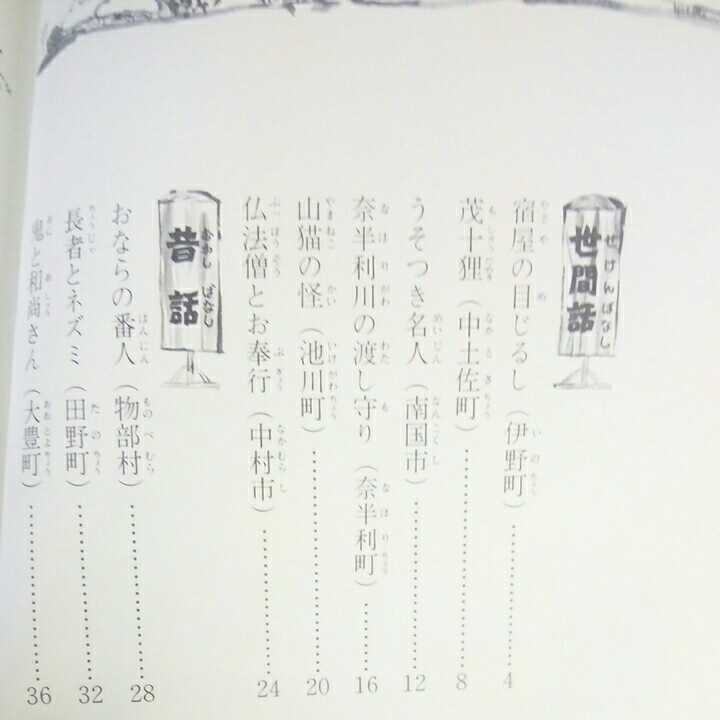 世間話
宿屋の目じるし（伊野町）………4
茂十狸（中土佐町）………8
うそつき名人（南国市）………12
奈半利川の渡し守り（奈半利町）………16
山猫の怪（池川町）………20
仏法僧とお奉行（中村市）………24
昔話
おならの番人（物部村）………28
長者とネズミ（田野町）………32
鬼と和尚さん（大豊町）………36